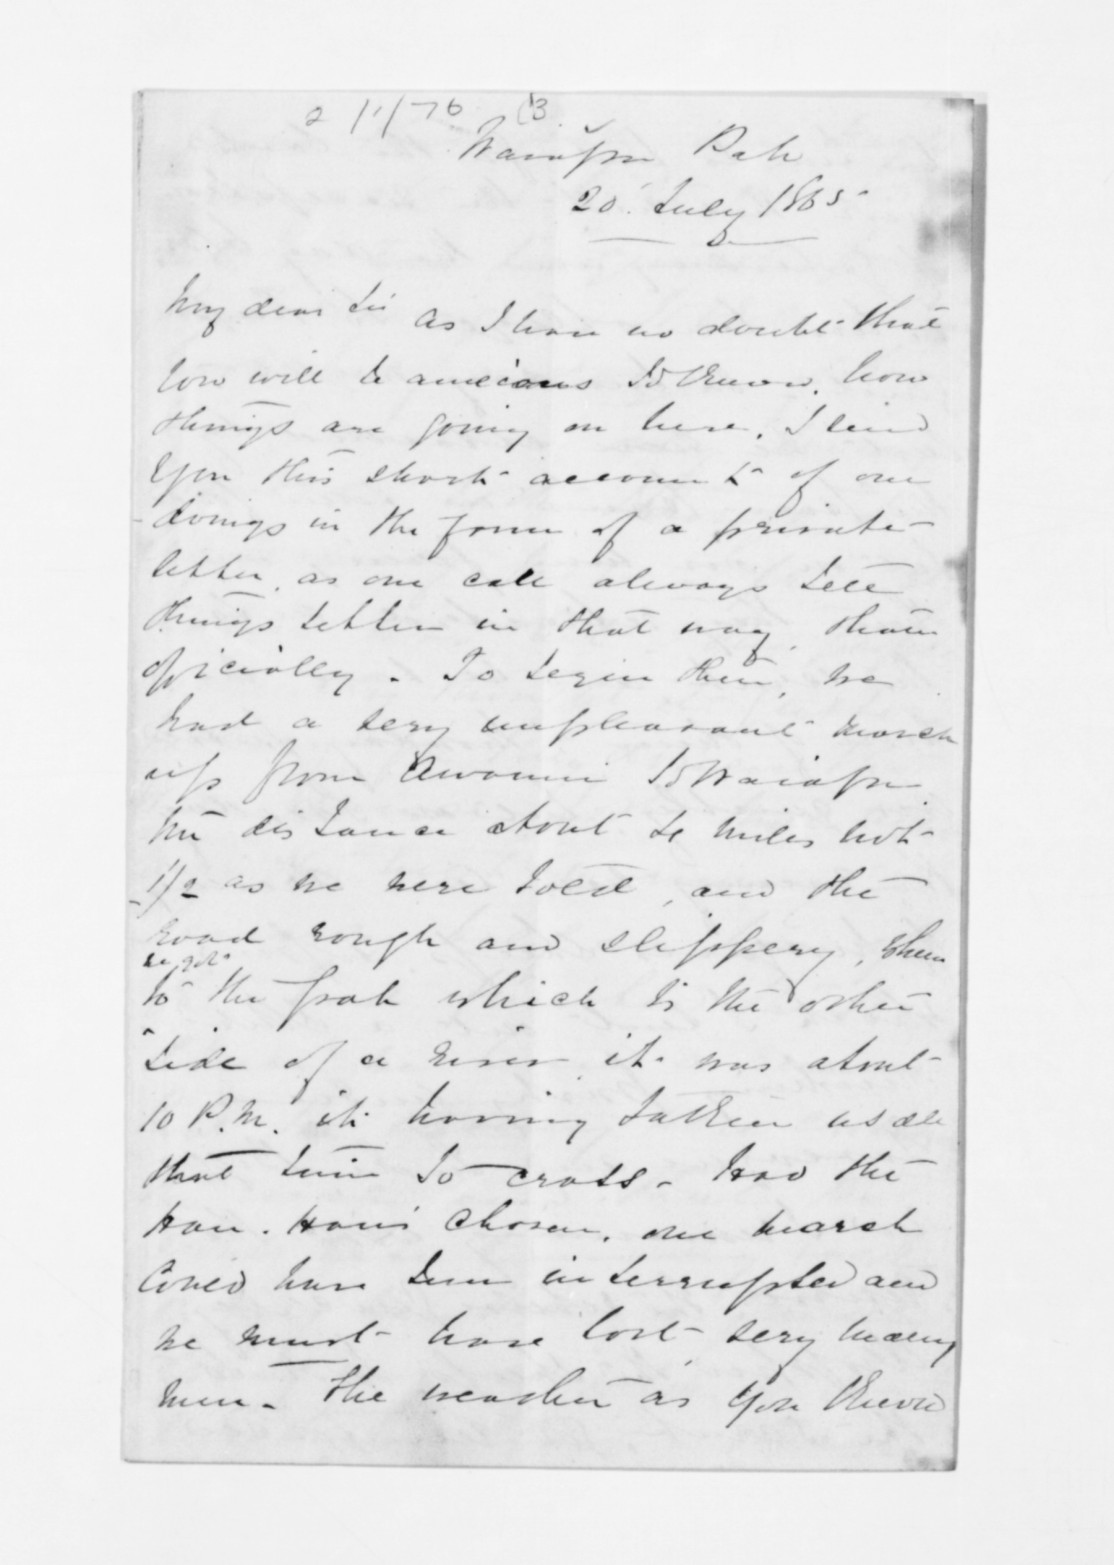 2/1/76 (3
Waiapu Pah
20 July 1865
My dear Sir As I have no doubt that
you will be anxious to know, how
things are going on here, I send
you this short account of our
doings in the form of a private
letter, as one can always tell
things better in that way, than
officially. To begin then, we
had a very unpleasant march
up from Awanui to Waiapu
the distance about 12 miles not
1/2 as we were told, and the
road rough and slippery, when
we got
to the pah which is the other
side of a river, it was about
10 P.M. it having taken us all
that time to cross. Had the
Hau. Hau's chosen, our march
could have been interrupted and
we must have lost very many
men. The weather as you know